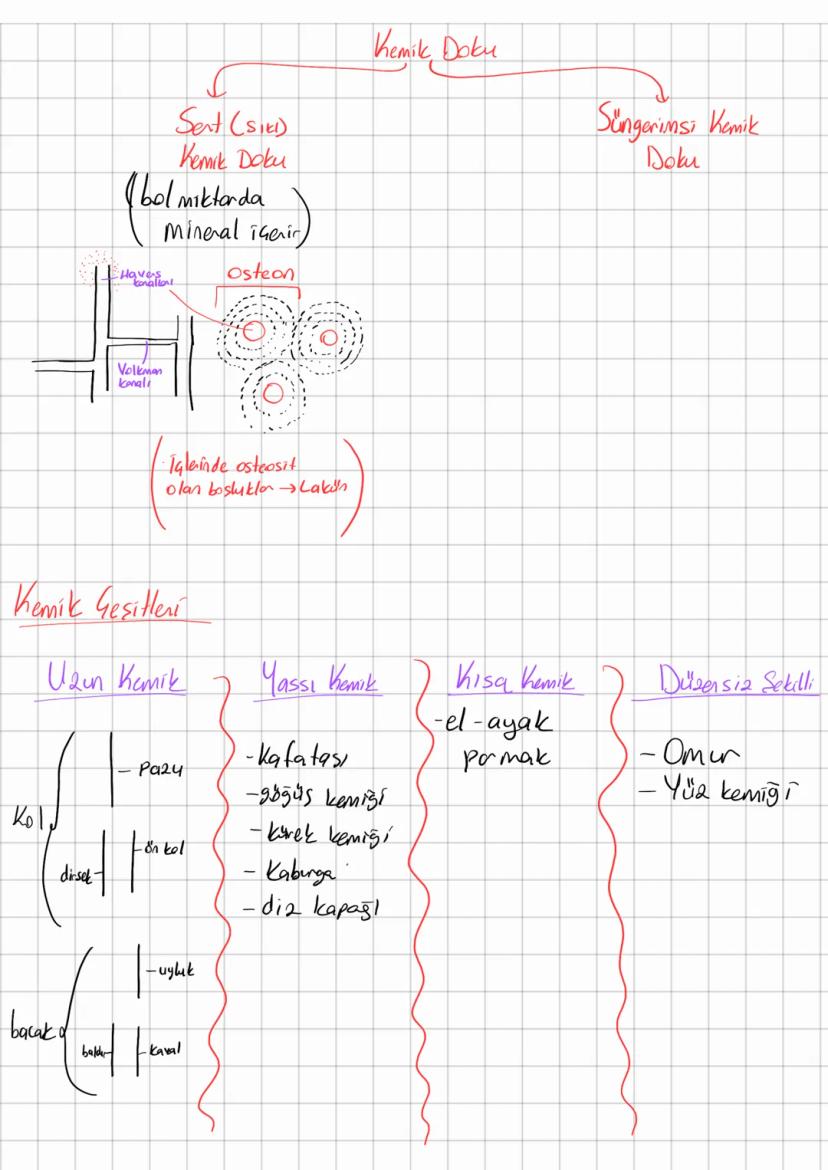 Kemik Doku
Sert (sıkı)
Kemik Doku
(bol miktarda
mineral içerir)
Süngerimsi Kemik
Doku
Havers
kanalları
Osteon
Volkman
kanalı
(İçlerinde osteosit
olan boşluklar → Lakün)
Kemik Çeşitleri
Uzun Kemik
Kol
- Pazu
- ön kol
dirsek -
bacak
- uyluk
baldır -
- kaval
Yassı Kemik
- Kafatası
- göğüs kemiği
- kürek kemiği
- Kaburga
- diz kapağı
Kısa Kemik
- el - ayak
parmak
Düzensiz Şekilli
- Omur
- Yüz kemiği